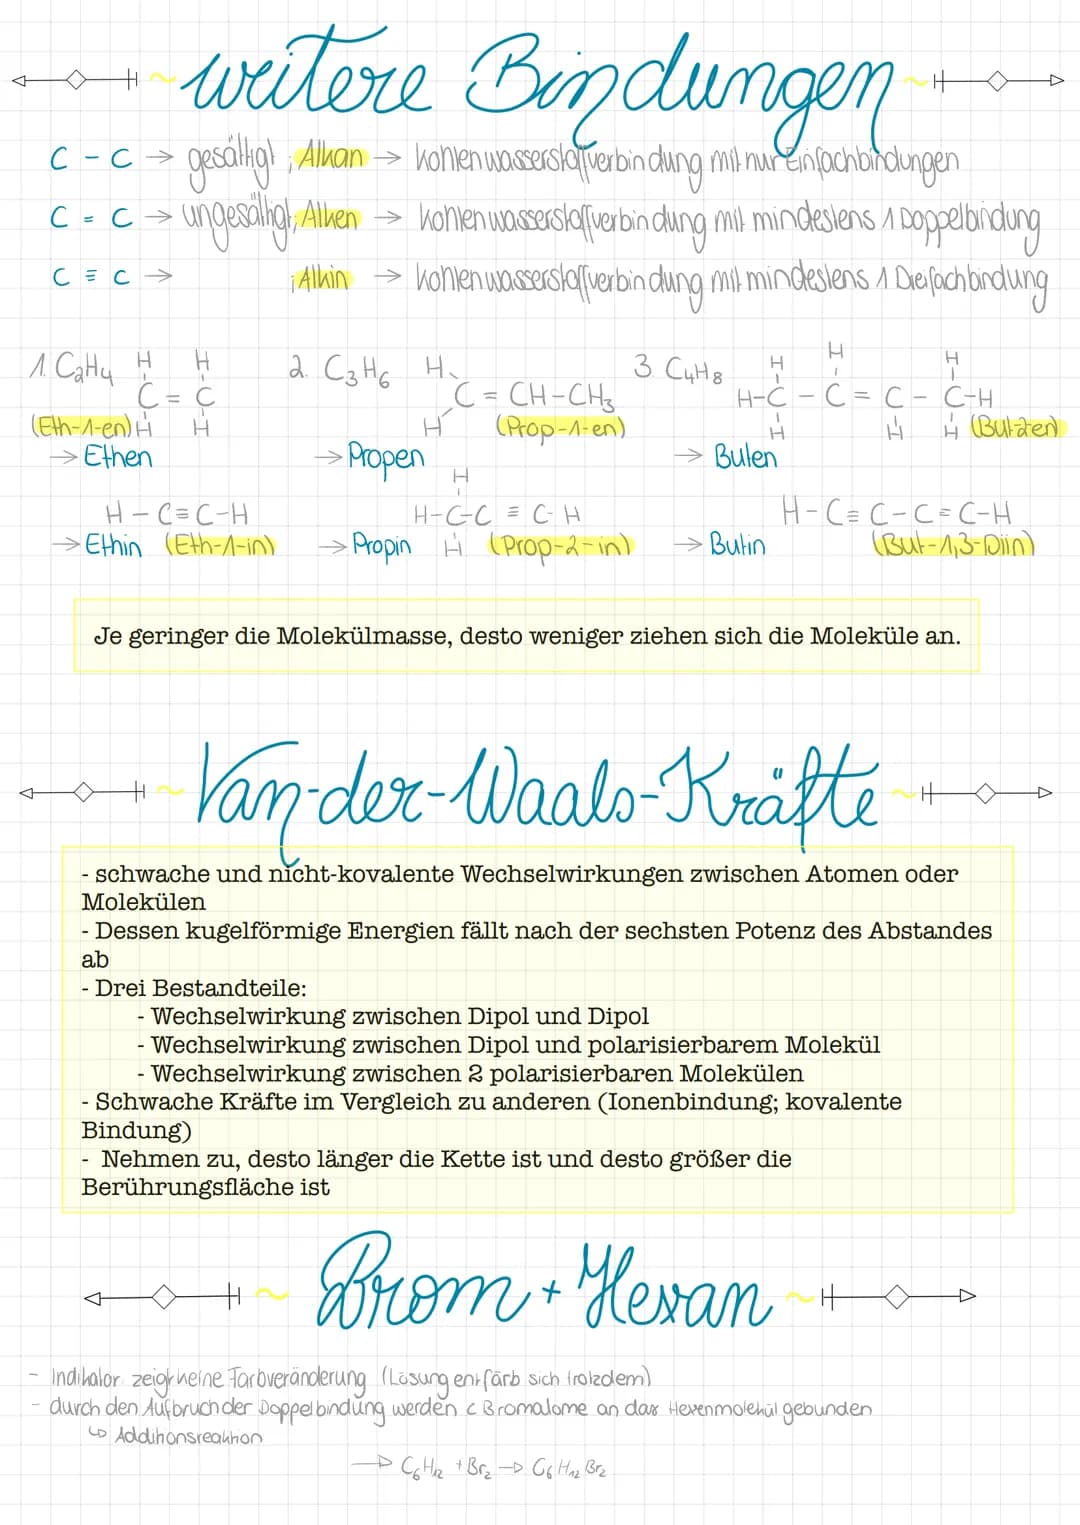 weitere Bindungen
C - C → gesättigt ; Alkan → Kohlenwasserstoffverbindung mit nur Einfachbindungen
C = C → ungesättigt ; Alken → Kohlenwasserstoffverbindung mit mindestens 1 Doppelbindung
C ≡ C → ; Alkin → Kohlenwasserstoffverbindung mit mindestens 1 Dreifachbindung
1. C₂H₄ H H 2. C₃H₆ H 3. C₄H₈ H H H
C = C C = CH-CH₃ H-C - C = C - C-H
(Eth-1-en) H H H (Prop-1-en) H H H (But-2-en)
→ Ethen → Propen → Buten
H
H - C ≡ C - H H-C-C ≡ C-H H-C ≡ C-C = C-H
→ Ethin (Eth-1-in) → Propin H (Prop-2-in) → Butin (But-1,3-Diin)
Je geringer die Molekülmasse, desto weniger ziehen sich die Moleküle an.
Van-der-Waals-Kräfte
- schwache und nicht-kovalente Wechselwirkungen zwischen Atomen oder
Molekülen
- Dessen kugelförmige Energien fällt nach der sechsten Potenz des Abstandes
ab
- Drei Bestandteile:
- Wechselwirkung zwischen Dipol und Dipol
- Wechselwirkung zwischen Dipol und polarisierbarem Molekül
- Wechselwirkung zwischen 2 polarisierbaren Molekülen
- Schwache Kräfte im Vergleich zu anderen (Ionenbindung; kovalente
Bindung)
- Nehmen zu, desto länger die Kette ist und desto größer die
Berührungsfläche ist
Brom + Hexan
- Indikator zeigt keine Farbveränderung (Lösung entfärb sich trotzdem)
- durch den Aufbruch der Doppelbindung werden c Bromatome an das Hexenmolekül gebunden
↳ Additionsreaktion
→ C₆H₁₂ + Br₂ → C₆H₁₂Br₂